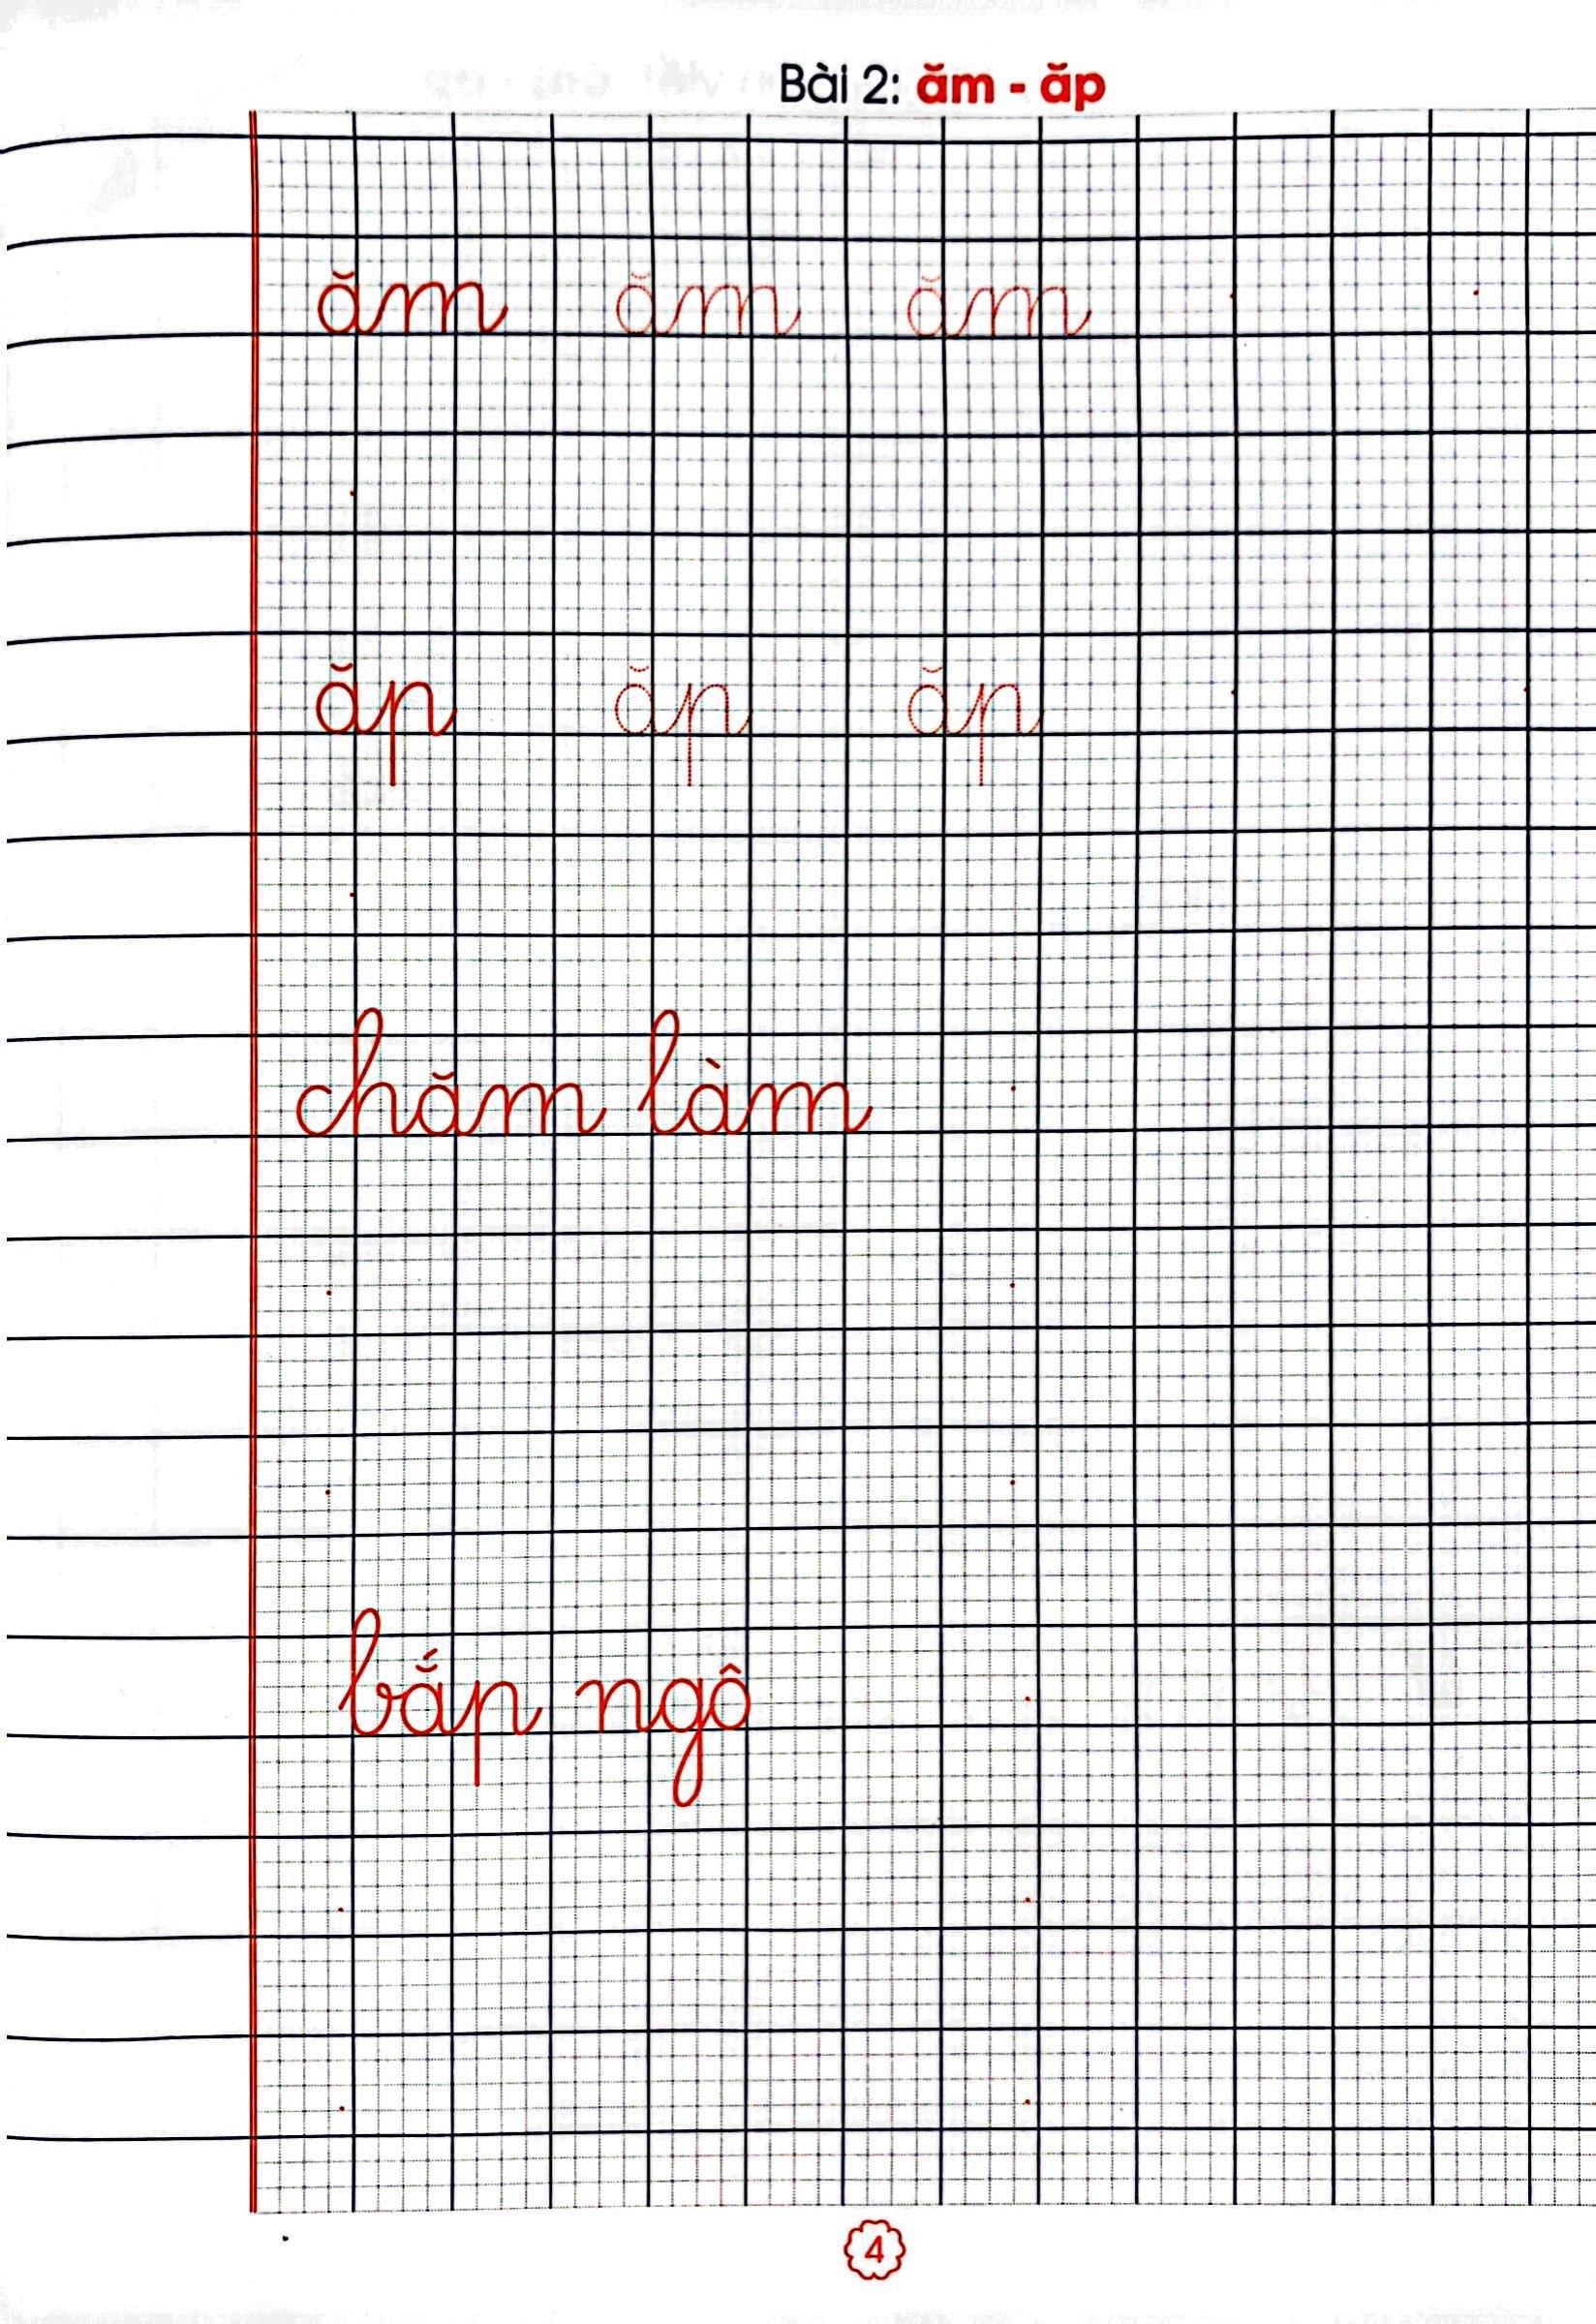 Bài 2: ăm - ăp
ăm ăm ăm
ăp ăp ăp
chăm làm
bắp ngô
4